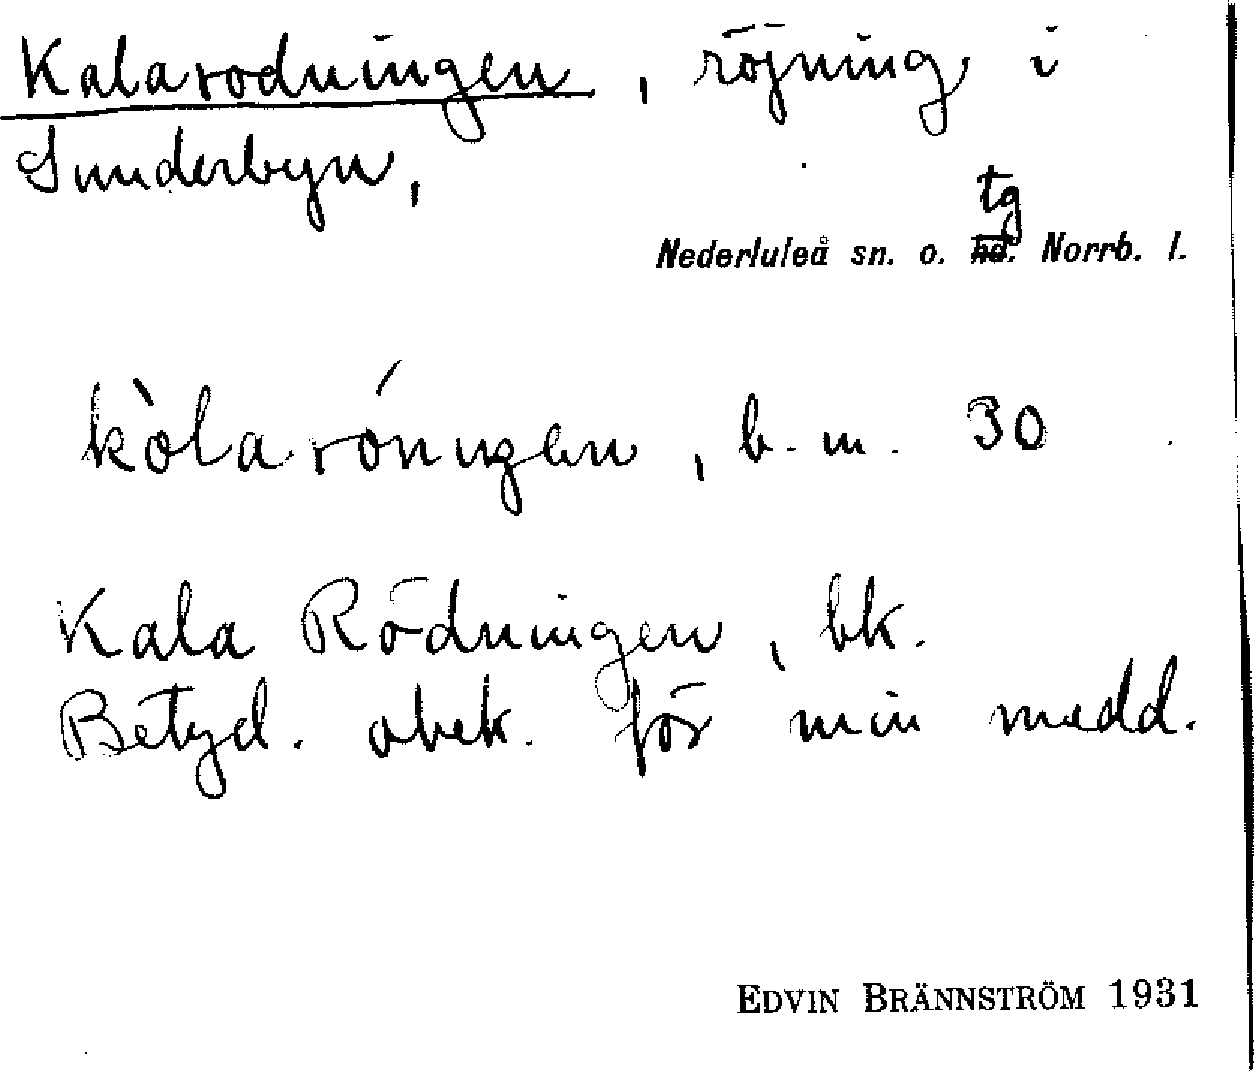 Kalarodningen, röjning i
Sunderbyn,
tg
Nederluleå sn. o. hd. Norrb. l.
kòlaróningen, b. m. 30
Kala Rödningen, bk.
Betyd. obek. för min medd.
EDVIN BRÄNNSTRÖM 1931